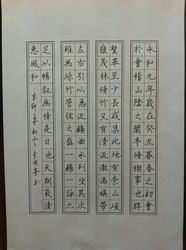 永和九年歲在癸丑暮春之初會
於會稽山陰之蘭亭修禊事也群
賢畢至少長咸集此地有崇山峻
嶺茂林修竹又有清流激湍映帶
左右引以為流觴曲水列坐其次
雖無絲竹管弦之盛一觴一詠亦
足以暢敘幽情是日也天朗氣清
惠風和暢